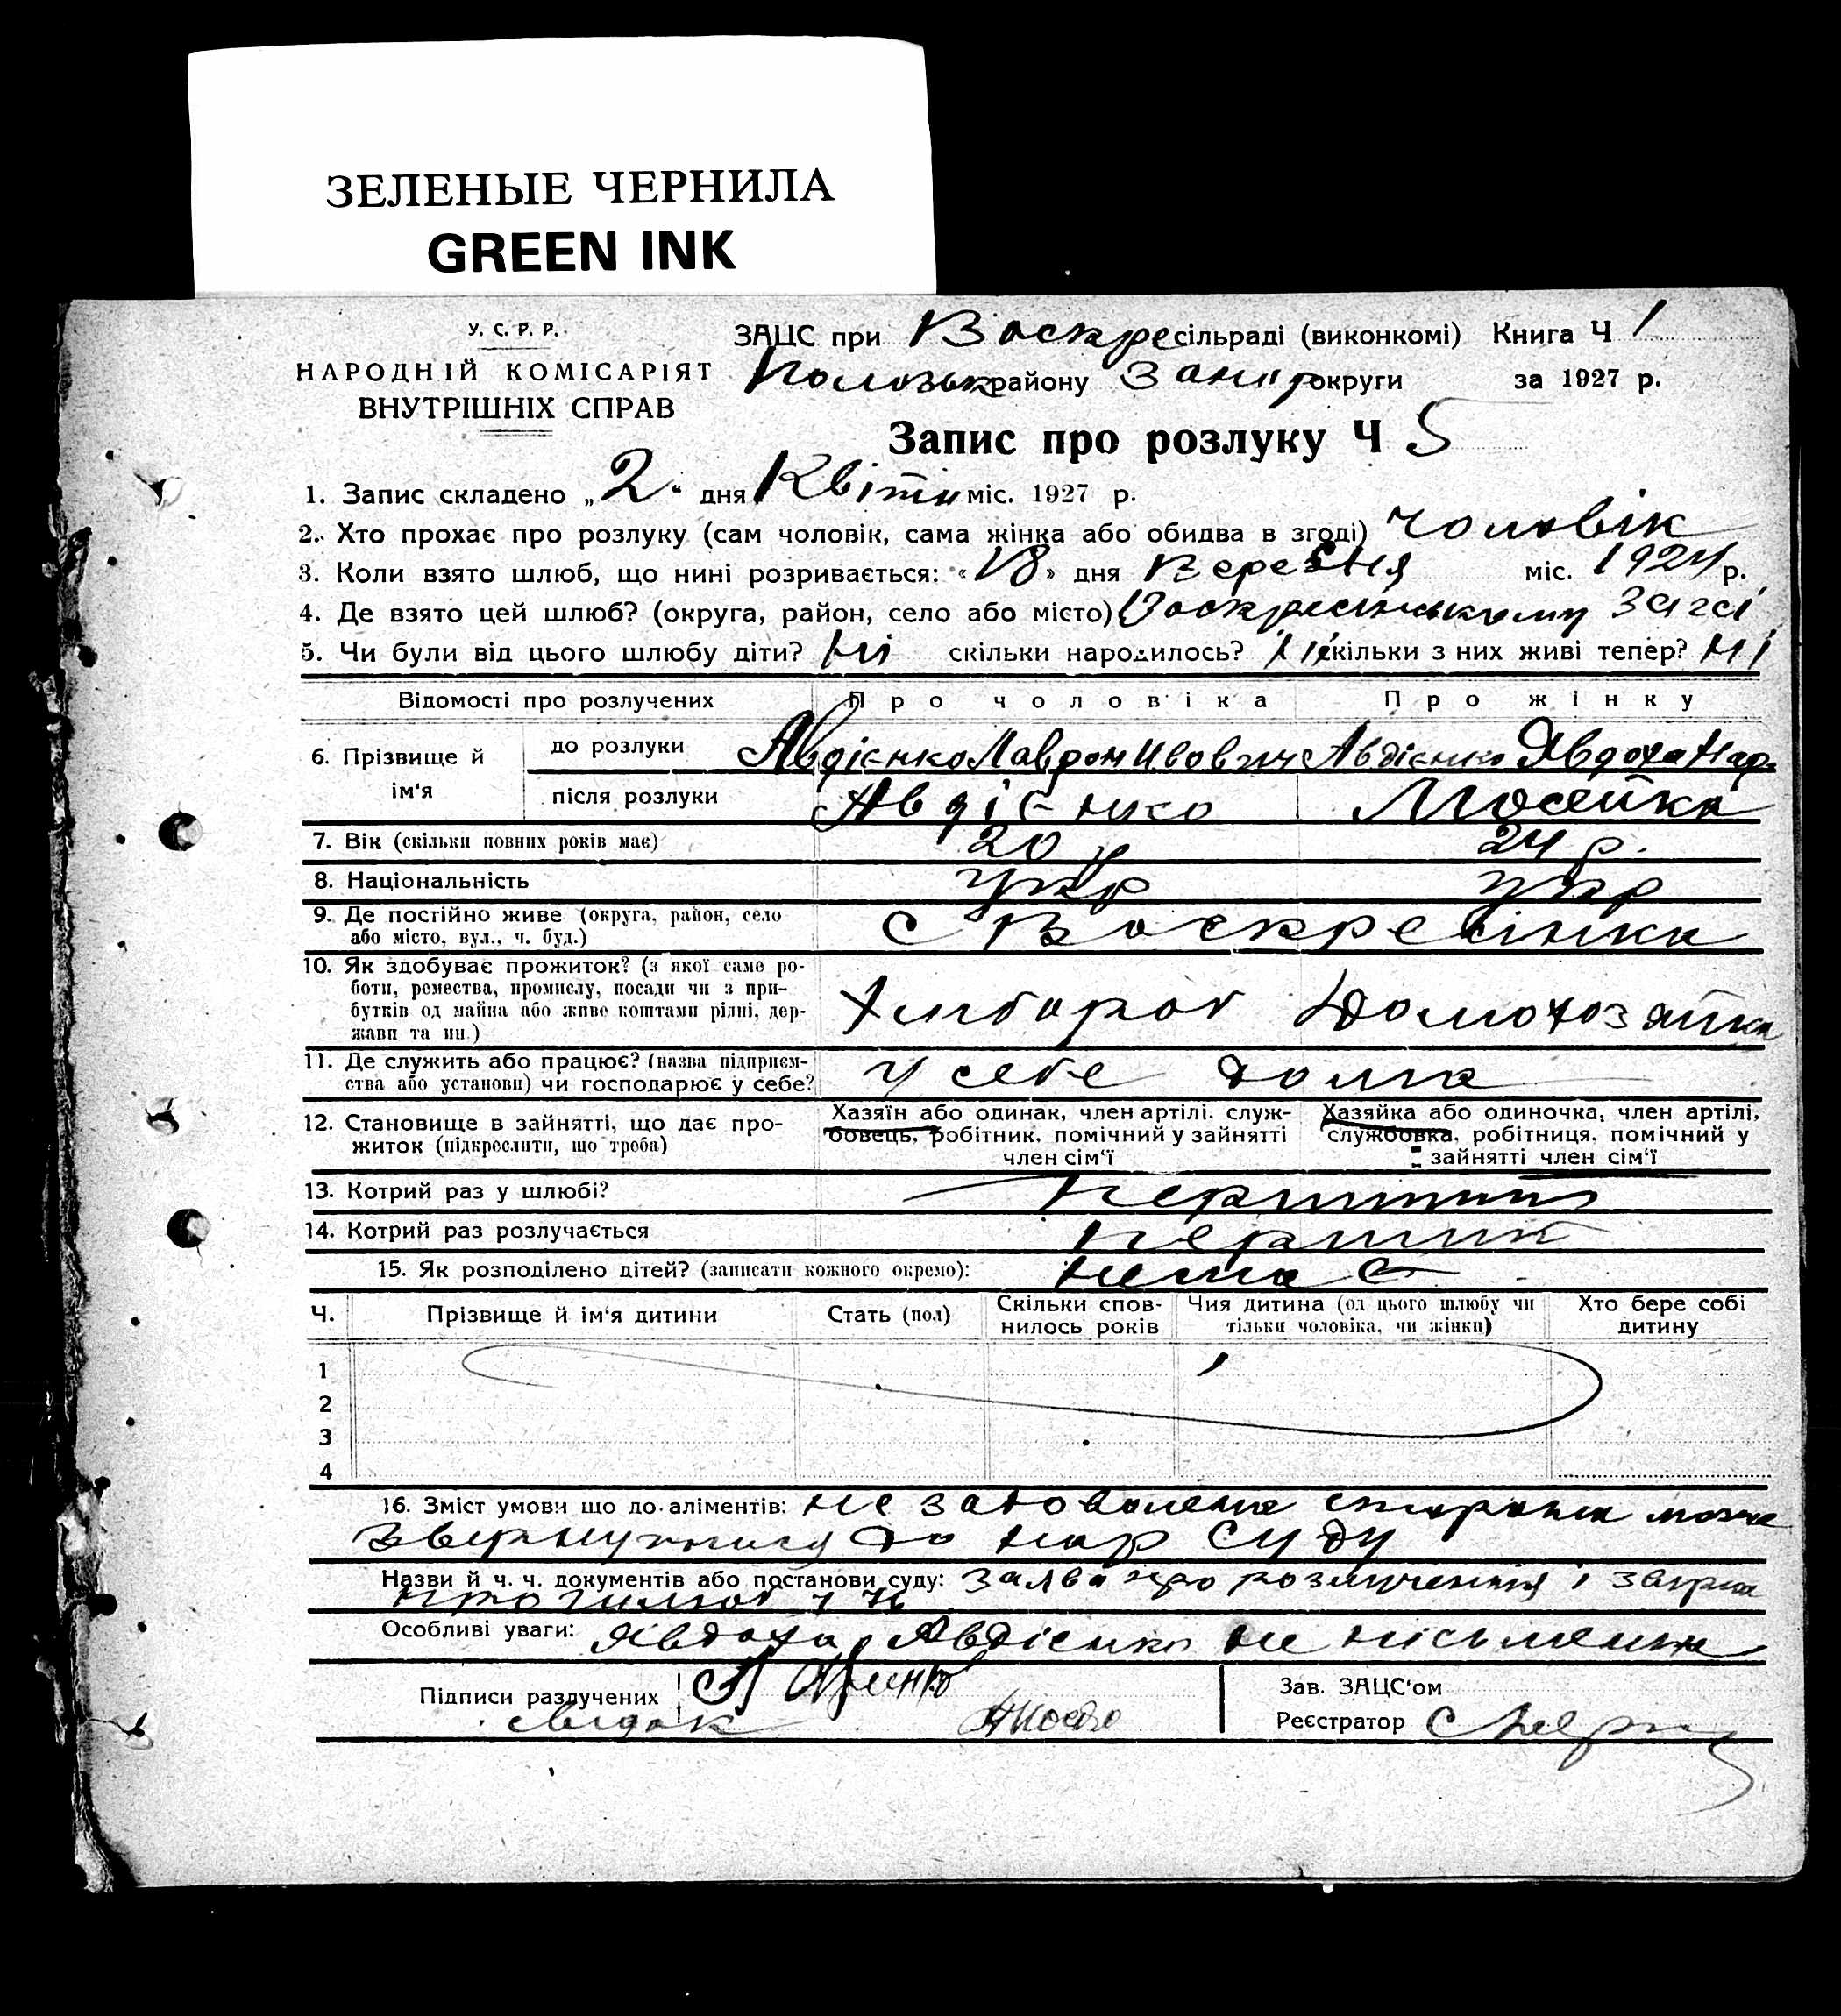 ЗЕЛЕНЫЕ ЧЕРНИЛА
GREEN INK
У. С. Р. Р.
НАРОДНІЙ КОМІСАРІЯТ
ВНУТРІШНІХ СПРАВ
ЗАЦС при Воскре сільраді (виконкомі) Книга Ч 1
району Запор округи за 1927 р.
Запис про розлуку Ч 5
1. Запис складено „2“ дня Квітн міс. 1927 р.
2. Хто прохає про розлуку (сам чоловік, сама жінка або обидва в згоді) чоловік
3. Коли взято шлюб, що нині розривається: «18» дня Вересня міс. 1924 р.
4. Де взято цей шлюб? (округа, район, село або місто) Воскресінському Загсі
5. Чи були від цього шлюбу діти? ні скільки народилось? скільки з них живі тепер? ні
Відомості про розлучених Про чоловіка Про жінку
6. Прізвище й ім‘я
до розлуки Авдієнко Лаврон Авдієнко Явдоха Нар.
після розлуки Авдієнко Мосейка
7. Вік (скільки повних років має) 20 р 24 р.
8. Національність укр укр
9. Де постійно живе (округа, район, село
або місто, вул., ч. буд.) с Воскресінка
10. Як здобуває прожиток? (з якої саме ро-
боти, ремества, промислу, посади чи з при-
бутків од майна або живе коштами рідні, дер-
жави та ин.) Хлібороб Домохозяйка
11. Де служить або працює? (назва підприєм-
ства або установи) чи господарює у себе? у себе дома
12. Становище в зайнятті, що дає про-
житок (підкреслити, що треба)
Хазяїн або одинак, член артілі, служ-
бовець, робітник, помічний у зайнятті
член сім‘ї
Хазяйка або одиночка, член артілі,
службовка, робітниця, помічний у
зайнятті член сім‘ї
13. Котрий раз у шлюбі?
14. Котрий раз розлучається
15. Як розподілено дітей? (записати кожного окремо): немає
Ч. Прізвище й ім‘я дитини Стать (пол) Скільки спов-
нилось років Чия дитина (од цього шлюбу чи
тільки чоловіка, чи жінки) Хто бере собі
дитину
1
2
3
4
16. Зміст умови що до аліментів: не задоволена сторона може
звернутись до нар суду
Назви й ч. ч. документів або постанови суду: заява про розлучення і
Особливі уваги: Явдоха Авдієнко не письменна
Підписи разлучених
свідок
Зав. ЗАЦС‘ом
Реєстратор